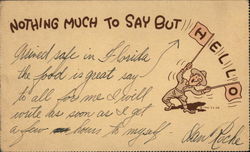 NOTHING MUCH TO SAY BUT
HELLO
Arrived safe in Florida
the food is great say
to all for me I will
write as soon as I get
a few hours to myself.